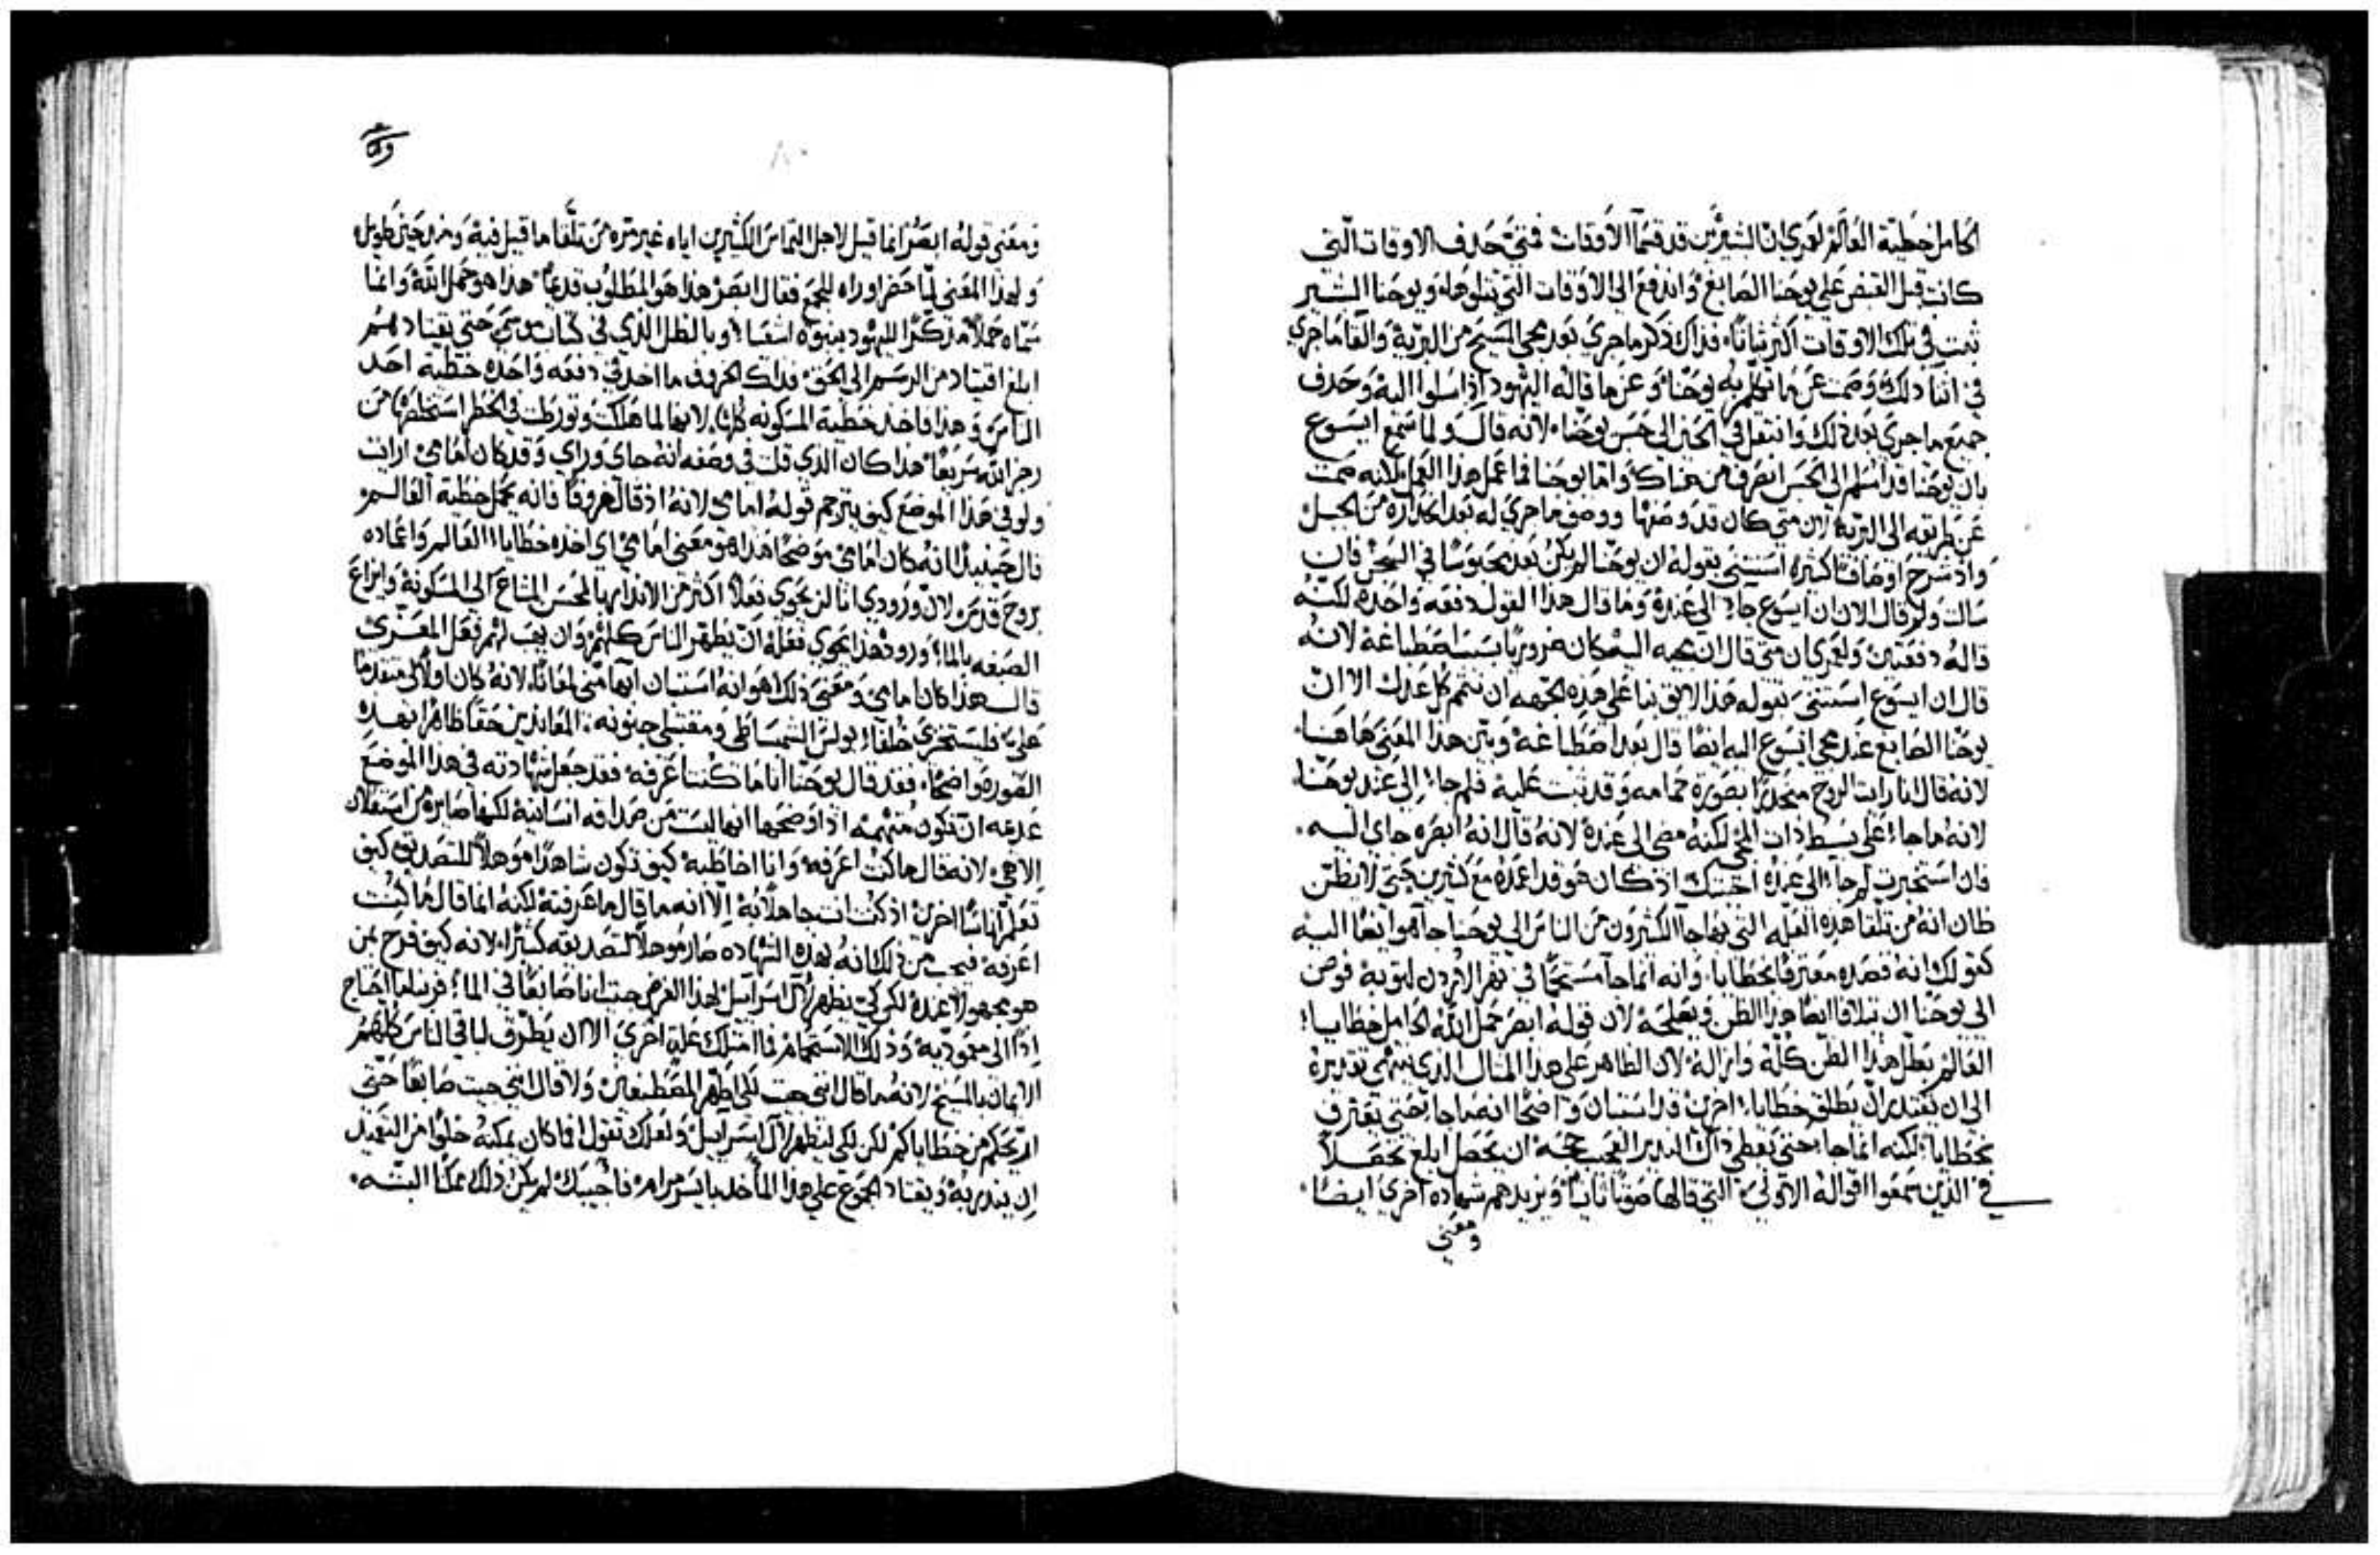 الحامل خطية العالم لعمري ان البشيرين قد قسما الاوقات فمتي حذف الاوقات التي
كانت قبل القبض علي يوحنا الصابغ واندفع الي الاوقات التي تتلوها ويوحنا البشير
ثبت في تلك الاوقات اكثر ثباتا فذاك ذكر ماجري بعد مجي المسيح من البرية والغا ماجري
في اثنا ذلك وصمت عن ما تكلم به يوحنا وعن ما قاله اليهود اذ ارسلوا اليه وحذف
جميع ماجري بعد ذلك وانتقل في الحين الي حبس يوحنا لانه قال ولما سمع ايسوع
بان يوحنا قد اسلم الي الحبس انصرف من هناك واما يوحنا فما عمل هذا العمل لانه صمت
عن طريقه الي البرية لان متي كان قد وصفها ووصف ماجري له بعد انحداره من الجبل
واذ شرح اوصافا كثيره استثني بقوله ان يوحنا لم يكن بعد محبوسا في السجن فان
سالت ولم قال الان ان ايسوع جاء الي عنده وما قال هذا القول دفعه واحده لكنه
قاله دفعتين ولعمري ان متي قال ان مجيه اليه كان ضروريا بسبب اصطباغه لانه
قال ان ايسوع استثني بقوله هذا لايق بنا علي هذه الجهه ان نتمم كل عدل الا ان
يوحنا الصابغ عند مجي ايسوع اليه ايضا قال بعد اصطباغه وبين هذا المعني هاهنا
لانه قال انا رايت الروح منحدرا بصورة حمامه وقد ثبت عليه فلم جاء الي عند يوحنا
لانه ماجاء علي بسيط ذات المجي لكنه مضي الي عنده لانه قال انه ابصره جاي اليه
فان استخبرت لم جاء الي عنده اجبتك اذ كان هو قد اعمده مع كثيرين حتي لا يظن
ظان انه من تلقا هذه العله التي بها جا الكثيرون من الناس الي يوحنا جا هو ايضا اليه
كقولك انه قصده معترفا بخطايا وانه انما جا مستحما في نهر الاردن لتوبة فوض
الي يوحنا ان يتلافا ايضا هذا الظن ويصلحه لان قوله ابصر حمل الله الحامل خطايا
العالم بطل هذا الظن كله وازاله لان الظاهر علي هذا المثال الذي ينتهي تقديره
الي ان يقتدر ان يطلق خطايا اخرين قد استبان واضحا انه ماجا حتي يعترف
بخطايا لكنه انما جا حتي يعطي ذاك النذير العجيب حجه ان يحصل ابلغ تحصلا
في الذين سمعوا اقواله الاولي التي قالها صوتا ثانيا ويزيدهم شهاده اخري ايضا
ومعني
ومعني قوله ابصر انما قيل لاجل التماس الكثيرين اياه غير مره من تلقا ما قيل فيه ومن حين طويل
ولهذا المعني لما حضر اوراه للجمع فقال ابصر هذا هو المطلوب قديما هذا هو حمل الله وانما
سماه حملا مذكرا لليهود بنبوه اشعيا وبالظل الذي في كتاب موسي حتي يقتادهم
ابلغ اقتياد من الرسم الي الحق فذلك الخروف ما اخذ في دفعه واحده خطية احد
الناس وهذا فاخذ خطية المسكونه كلها لانها لما هلكت وتورطت في الخطر استخلصها من
رجز الله سريعا هذا كان الذي قلت في وصفه انه جاي وراي وقد كان امامي ارايت
ولو في هذا الموضع كيف يترجم قوله امامي لانه اذ قال خروفا فانه يحمل خطية العالم
قال حينيذ انه كان امامي موضحا هذا هو معني امامي اي اخذه خطايا العالم واعماده
بروح قدس لان ورودي انا لن يحوي فعلا اكثر من الانذار بالمحسن المشاع الي المسكونة وايزاع
الصبغه بالماء وورود هذا يحوي فعله ان يطهر الناس كلهم وان يهب لهم فعل المعزي
قال هذا كان امامي ومعني ذلك هو انه استبان ابها مني لمعانا لانه كان اولا لي متقدما
علي فليستخزي خلفاء بولس الشمساطي ومقتبلي جنونه المعاندين حقا ظاهرا بهذه
الصوره واضحا فقد قال يوحنا انا ما كنت اعرفه فقد جعل شهادته في هذا الموضع
عديمه ان تكون متهمه اذ اوضحها انها ليست من صداقه انسانية لكنها صايره من استعلان
الاهي لانه قال ماكنت اعرفه وانا اخاطبه كيف تكون شاهدا موهلا للتصديق كيف
تعلم اناسا اخرين اذ كنت انت جاهلا به الا انه ما قال ما عرفته لكنه انما قال ماكنت
اعرفه فيجب من ذلك انه بهذه الشهاده صار موهلا لتصديقه كثيرا لانه كيف فرح بمن
هو مجهول عنده لكن كي يظهر لآل اسرآيل لهذا الغرض جيت انا صابغا في الماء فربنا ما احتاج
اذا الي معموديه وذلك الاستحمام فما امتلك عله اخري الا ان يطرق لباقي الناس كلهم
الايمان بالمسيح لانه ما قال انني جيت لكي اطهر المصطبغين ولا قال انني جيت صابغا حتي
اريحكم من خطاياكم لكن لكي ليظهر لآل اسرآييل ولعلك تقول افما كان يمكنه خلوا من التعميد
ان ينذر به ويقتاد الجموع علي هذا الماخذ بايسر مرام فاجيبك لم يكن ذلك ممكنا البته